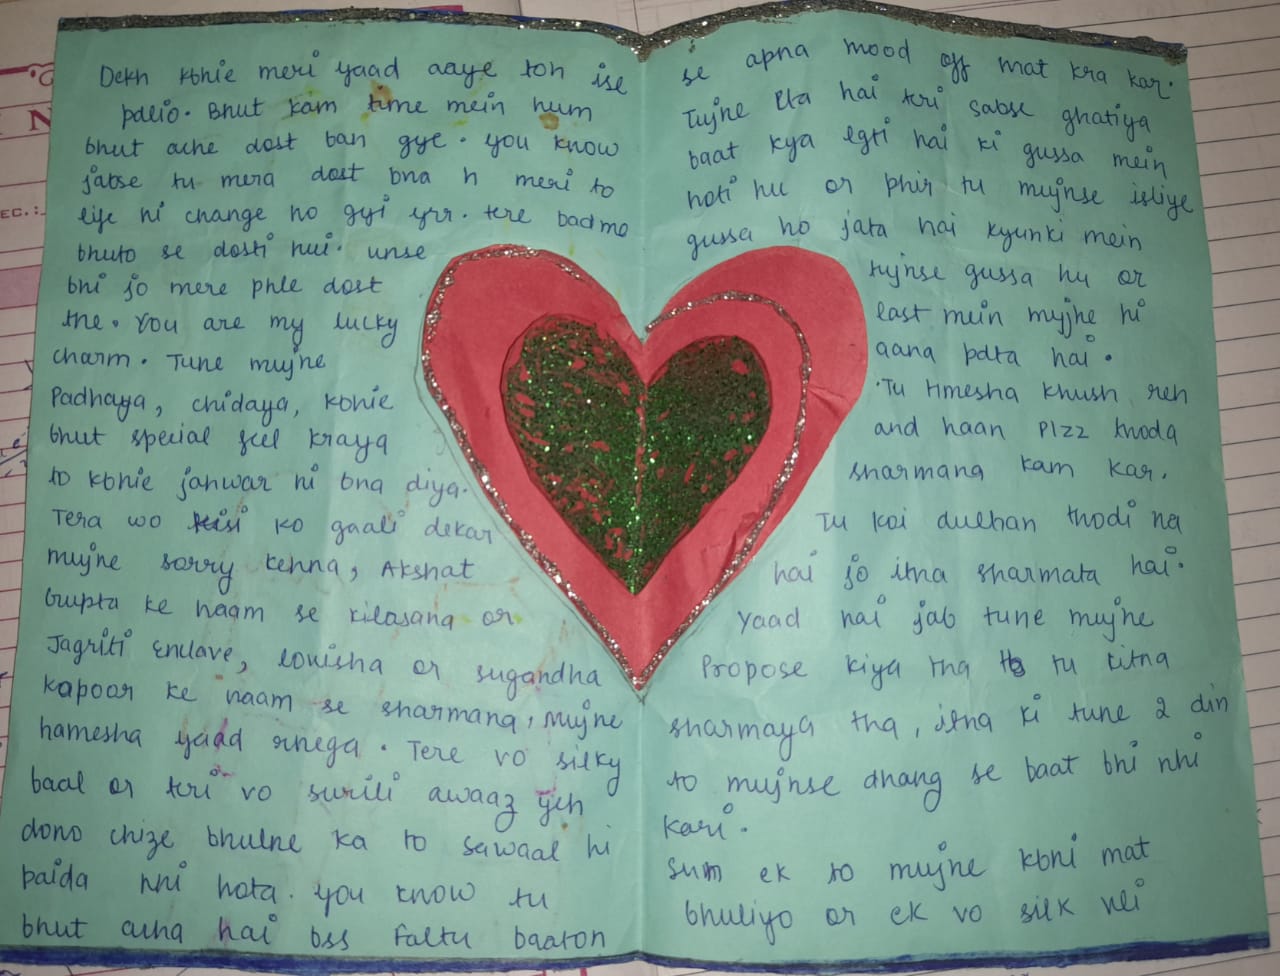 Dekh kbhie meri yaad aaye toh ise
padio. Bhut kam time mein hum
bhut ache dost ban gye. you know
jabse tu mera dost bna h meri to
life hi change ho gyi yrr. tere badme
bhuto se dosti hui. unse
bhi jo mere phle dost
the. You are my lucky
charm. Tune mujhe
Padhaya, chidaya, kbhie
bhut special feel kraya
to kbhie janwar hi bna diya.
Tera wo kisi ko gaali dekar
mujhe sorry kehna, Akshat
Gupta ke naam se kilasana or
Jagriti Enclave, lovisha or sugandha
kapoor ke naam se sharmana, mujhe
hamesha yaad rhega. Tere vo silky
baal or teri vo surili awaaz yeh
dono chize bhulne ka to sawaal hi
paida nhi hota. you know tu
bhut acha hai bss faltu baaton
se apna mood off mat kra kar.
Tujhe pta hai teri sabse ghatiya
baat kya lgti hai ki gussa mein
hoti hu or phir tu mujhse isliye
gussa ho jata hai kyunki mein
tujhse gussa hu or
last mein mujhe hi
aana pdta hai.
Tu Hmesha khush reh
and haan Plzz thoda
sharmana kam kar.
Tu koi dulhan thodi na
hai jo itna sharmata hai.
Yaad hai jab tune mujhe
Propose kiya tha tu kitna
sharmaya tha, itna ki tune 2 din
to mujhse dhang se baat bhi nhi
kari.
Sum ek to mujhe kbhi mat
bhuliyo or ek vo silk
N
EC.: